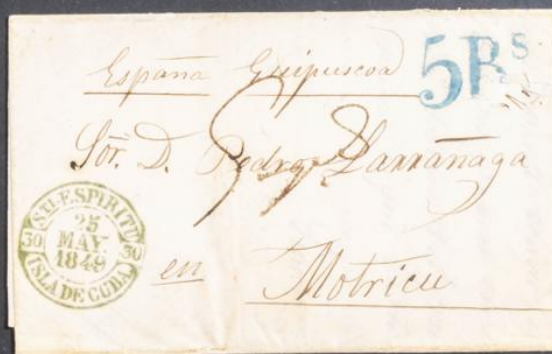 España Guipuscoa
5 Rs
Sor. D. Pedro Larrãnaga
en Motricu
STI-ESPIRITU
25
MAY
1849
30 30
ISLA DE CUBA